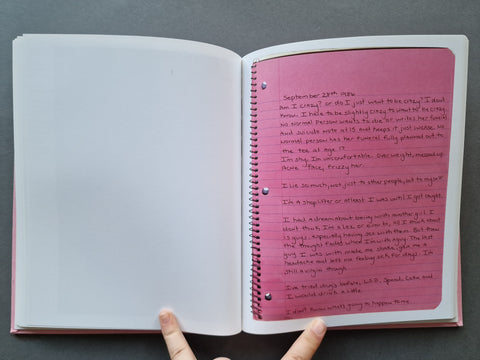 September 28th 1986
Am I crazy? or do I just want to be crazy? I dont
know. I have to be slightly crazy to want to be crazy.
No normal person wants to die or writes her funeral
and suicide note at 15 and keeps it just incase. No
normal person has her funeral fully planned out to
the tee at age 17.
I'm shy, I'm uncomfortable. Over weight, messed up
Acne face, Frizzy hair.
I lie so much, not just to other people, but to myself
I'm a shoplifter or atleast I was until I got caught.
I had a dream about being with another girl. I
don't think I'm a Les or
is guys, especially having sex with them. But how
the thought fades when I'm with a guy. The last
guy I was with made me shake, gave me a
headache and left me feeling sick for days. I'm
still a virgin though.
I've tried drugs before, L.S.D, Speed, Coke and
I would drink a little.
I don't know what's going to happen to me